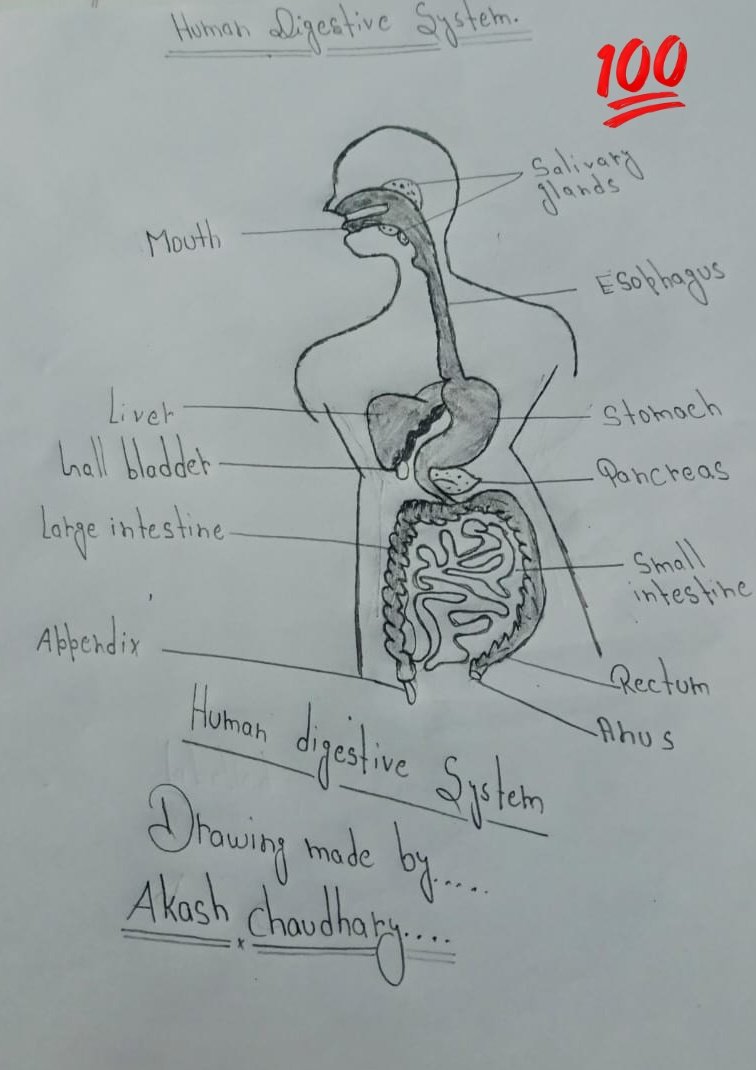 Human Digestive System.
100
Salivary
glands
Mouth
Esophagus
Liver
Stomach
hall bladder
Pancreas
Large intestine
Small
intestine
Appendix
Rectum
Anus
Human digestive System
Drawing made by.....
Akash chaudhary....